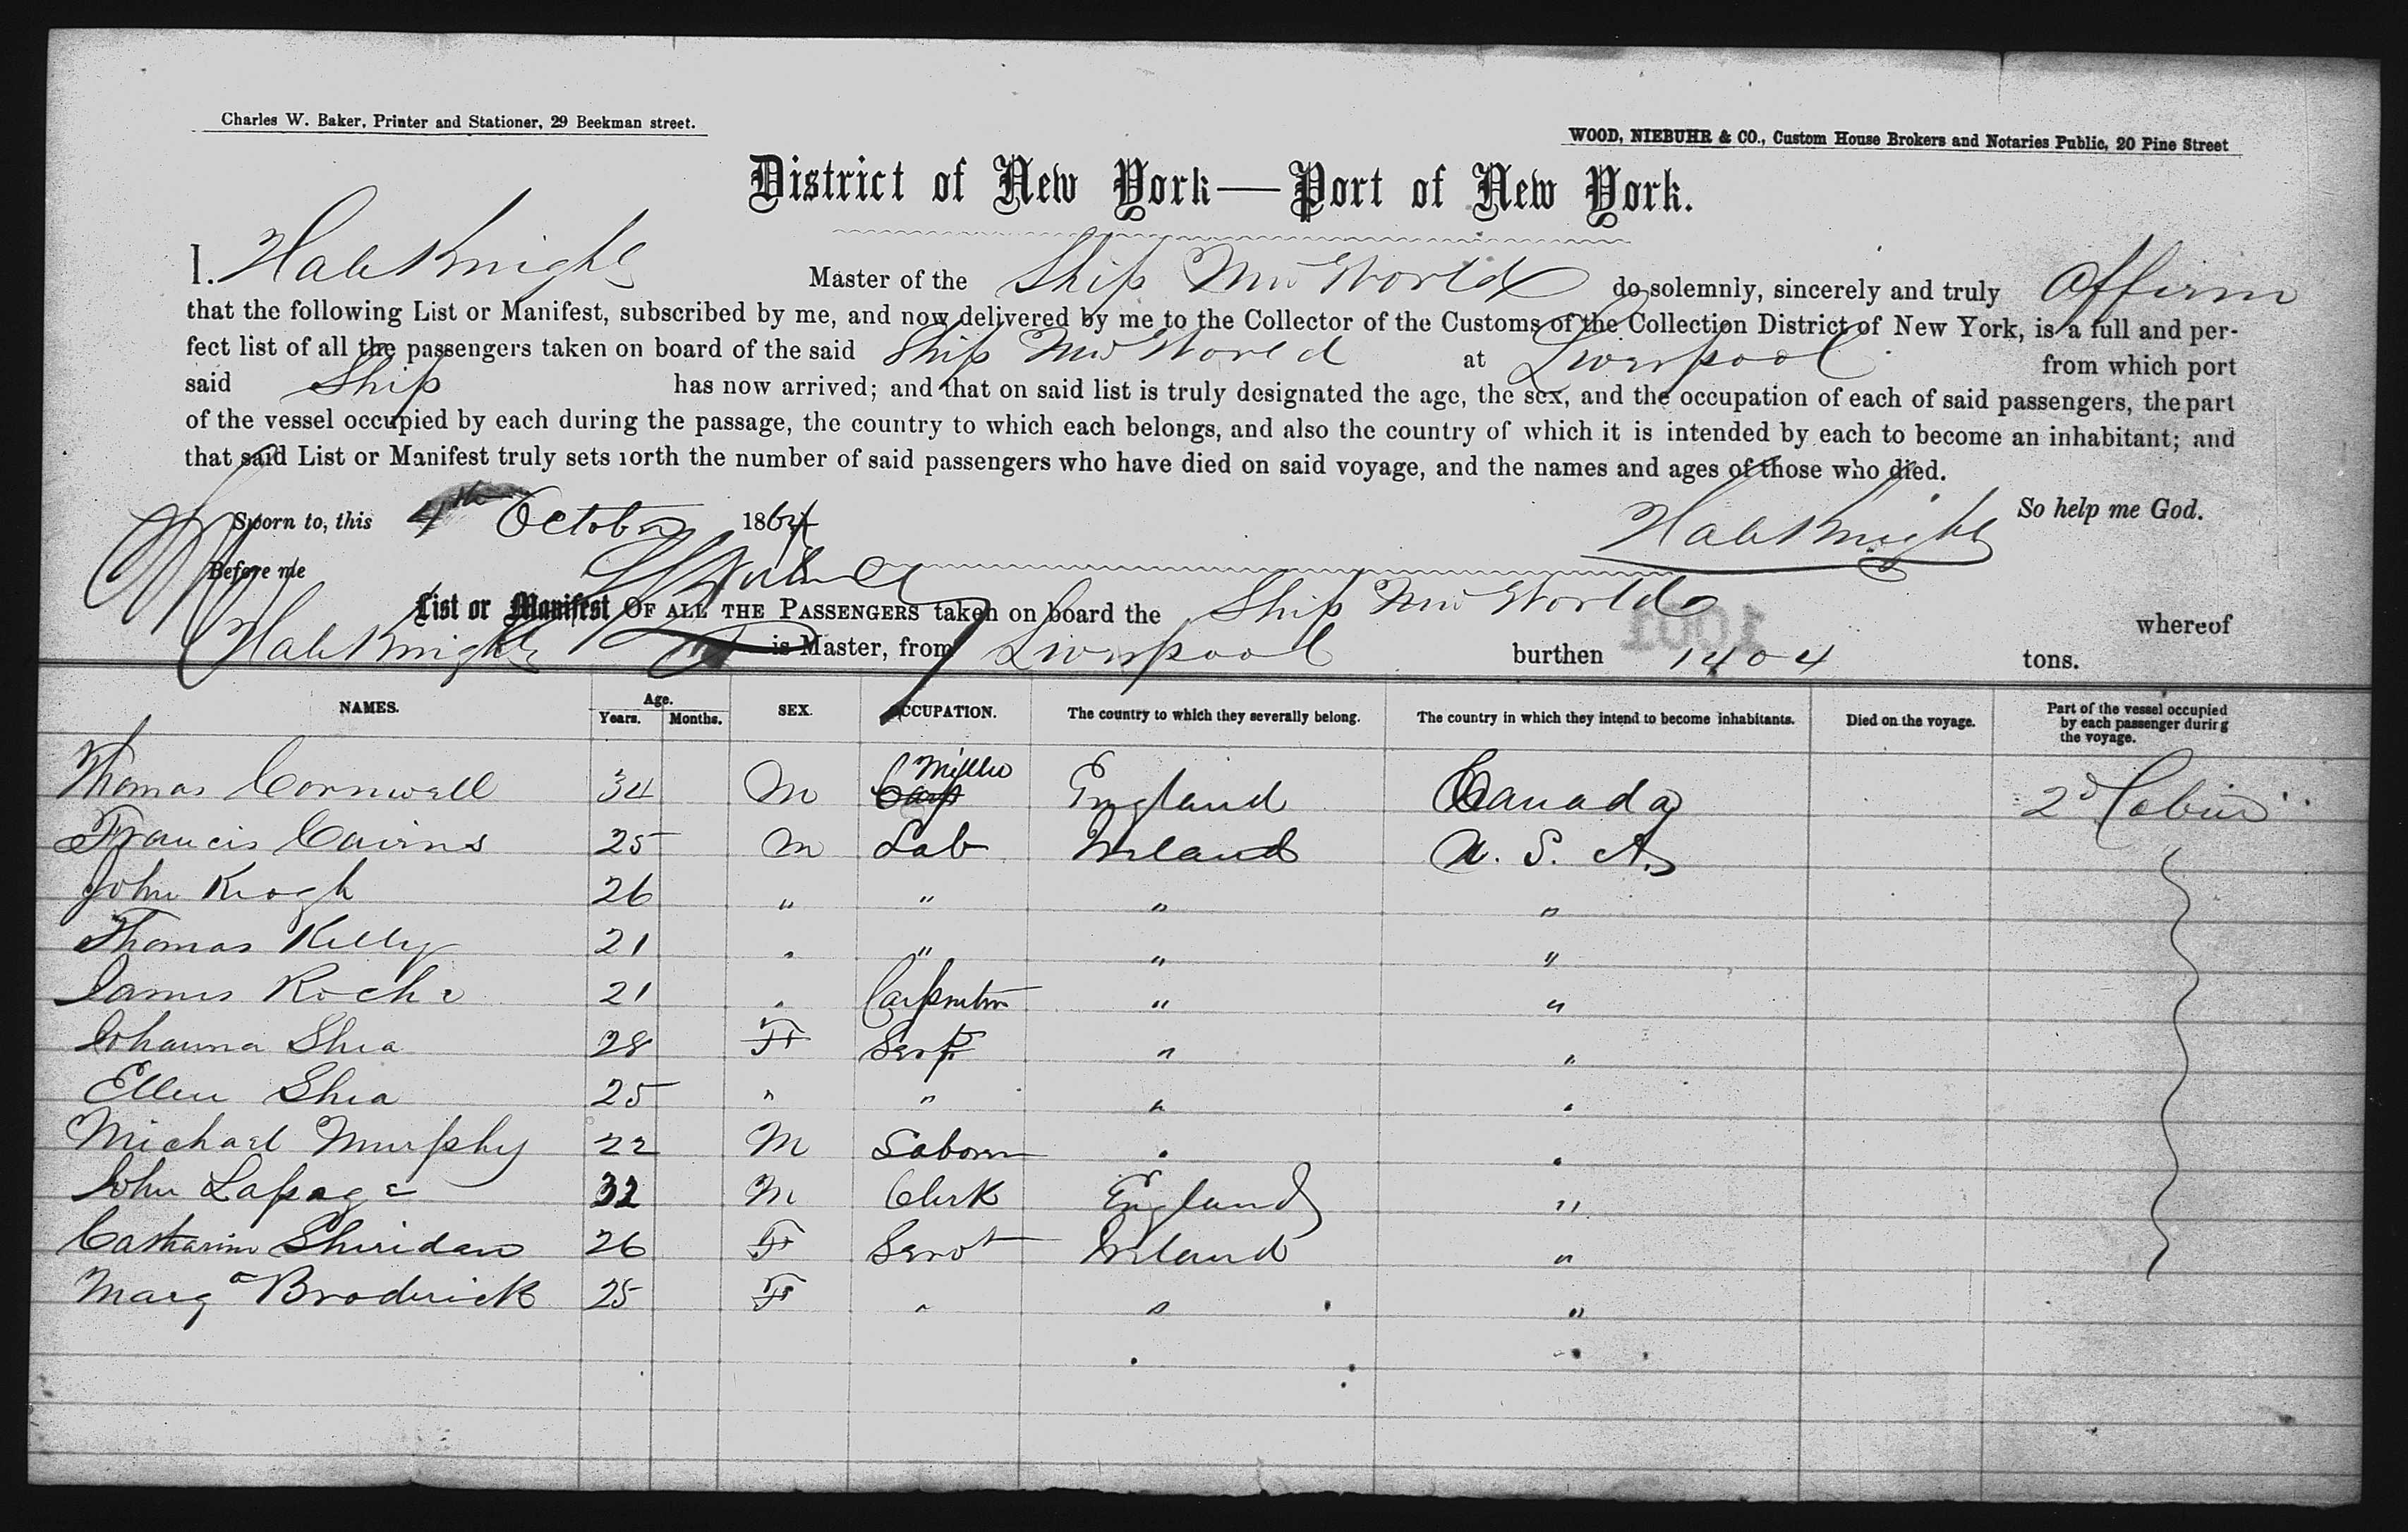 Charles W. Baker, Printer and Stationer, 29 Beekman street.
WOOD, NIEBUHR & CO., Custom House Brokers and Notaries Public, 20 Pine Street
District of New York—Port of New York.
I. Hale Knight Master of the Ship New World do solemnly, sincerely and truly Affirm
that the following List or Manifest, subscribed by me, and now delivered by me to the Collector of the Customs of the Collection District of New York, is a full and per-
fect list of all the passengers taken on board of the said Ship New World at Liverpool from which port
said Ship has now arrived; and that on said list is truly designated the age, the sex, and the occupation of each of said passengers, the part
of the vessel occupied by each during the passage, the country to which each belongs, and also the country of which it is intended by each to become an inhabitant; and
that said List or Manifest truly sets forth the number of said passengers who have died on said voyage, and the names and ages of those who died.
Sworn to, this 4th October 1864 Hale Knight So help me God.
Before me
List or Manifest OF ALL THE PASSENGERS taken on board the Ship New World whereof
Hale Knight is Master, from Liverpool burthen 1404 tons.
1001
NAMES. Age. Years. Months. SEX. OCCUPATION. The country to which they severally belong. The country in which they intend to become inhabitants. Died on the voyage. Part of the vessel occupied by each passenger during the voyage.
Thomas Cornwell 34 M Miller England Canada 2d Cabin
Francis Cairns 25 M Lab Ireland U. S. A.
John Keogh 26 " " " "
Thomas Kelly 21 " " " "
James Roche 21 " Carpenter " "
Johanna Shea 28 F Servt " "
Ellen Shea 25 " " " "
Michael Murphy 22 M Laborer " "
John Lapage 32 M Clerk England "
Catharine Sheridan 26 F Servt Ireland "
Marga Broderick 25 F " " "